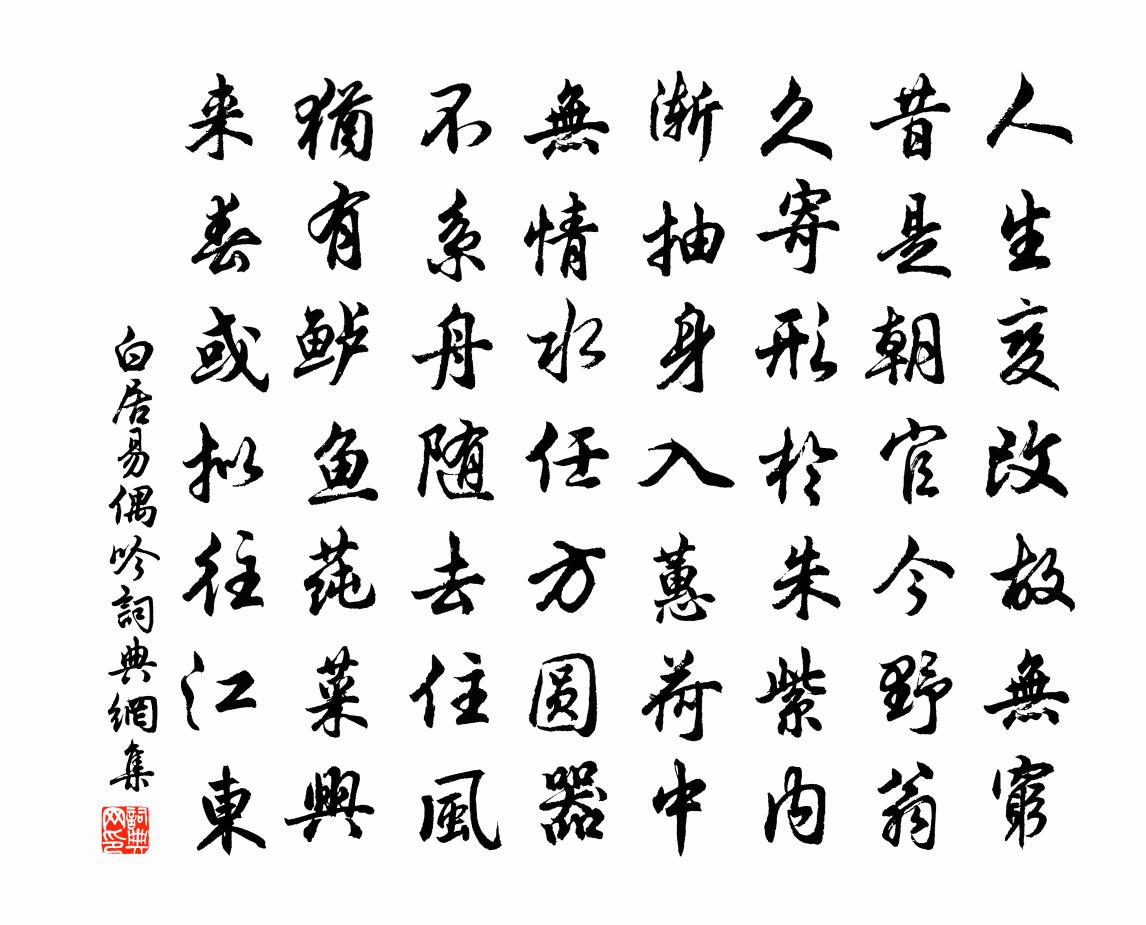 人生变改故無窮
昔是朝官今野翁
久寄形於朱紫内
渐抽身入蕙荷中
無情水任方圆器
不系舟随去住風
猶有鲈魚莼菜興
来春或拟往江東
白居易偶吟詞典網集
詞典网印